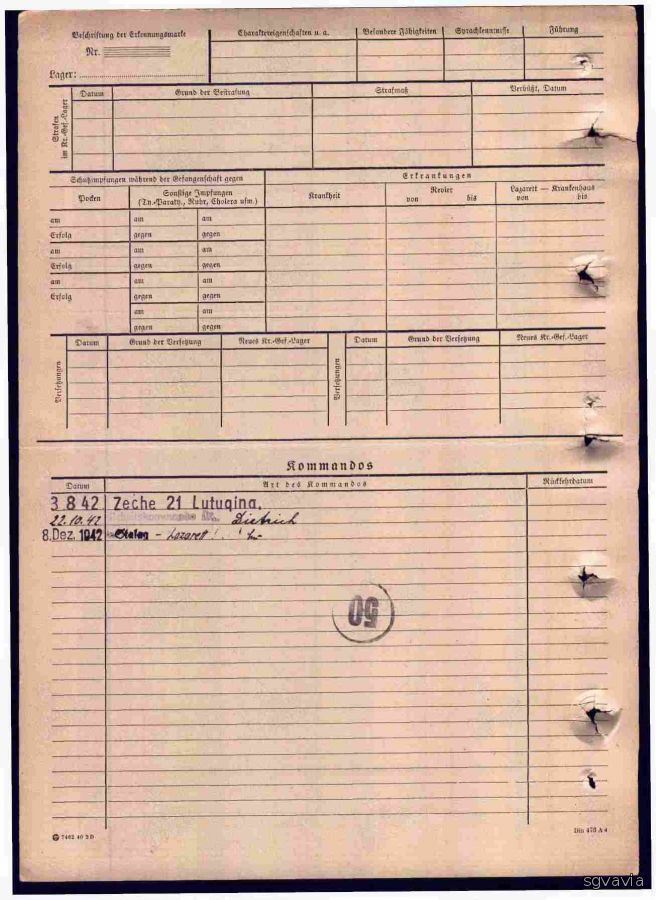 Beschriftung der Erkennungsmarke
Nr.
Lager:
Charaktereigenschaften u. a.
Besondere Fähigkeiten
Sprachkenntnisse
Führung
Strafen im Kr.-Gef.-Lager
Datum
Grund der Bestrafung
Strafmaß
Verbüßt, Datum
Schutzimpfungen während der Gefangenschaft gegen
Erkrankungen
Pocken
Sonstige Impfungen
(Ty.-Paraty., Ruhr, Cholera usw.)
Krankheit
Revier
von bis
Lazarett — Krankenhaus
von bis
am am am
Erfolg gegen gegen
am am am
Erfolg gegen gegen
am am am
Erfolg gegen gegen
am am
gegen gegen
Versetzungen
Datum
Grund der Versetzung
Neues Kr.-Gef.-Lager
Versetzungen
Datum
Grund der Versetzung
Neues Kr.-Gef.-Lager
Kommandos
Datum
Art des Kommandos
Rückkehrdatum
3 8 42 Zeche 21 Lutugina.
22.10.42 Dietrich
8. Dez. 1942 Stalag - Lazarett
50
7462 40 2 D
Din 476 A 4
sgvavia